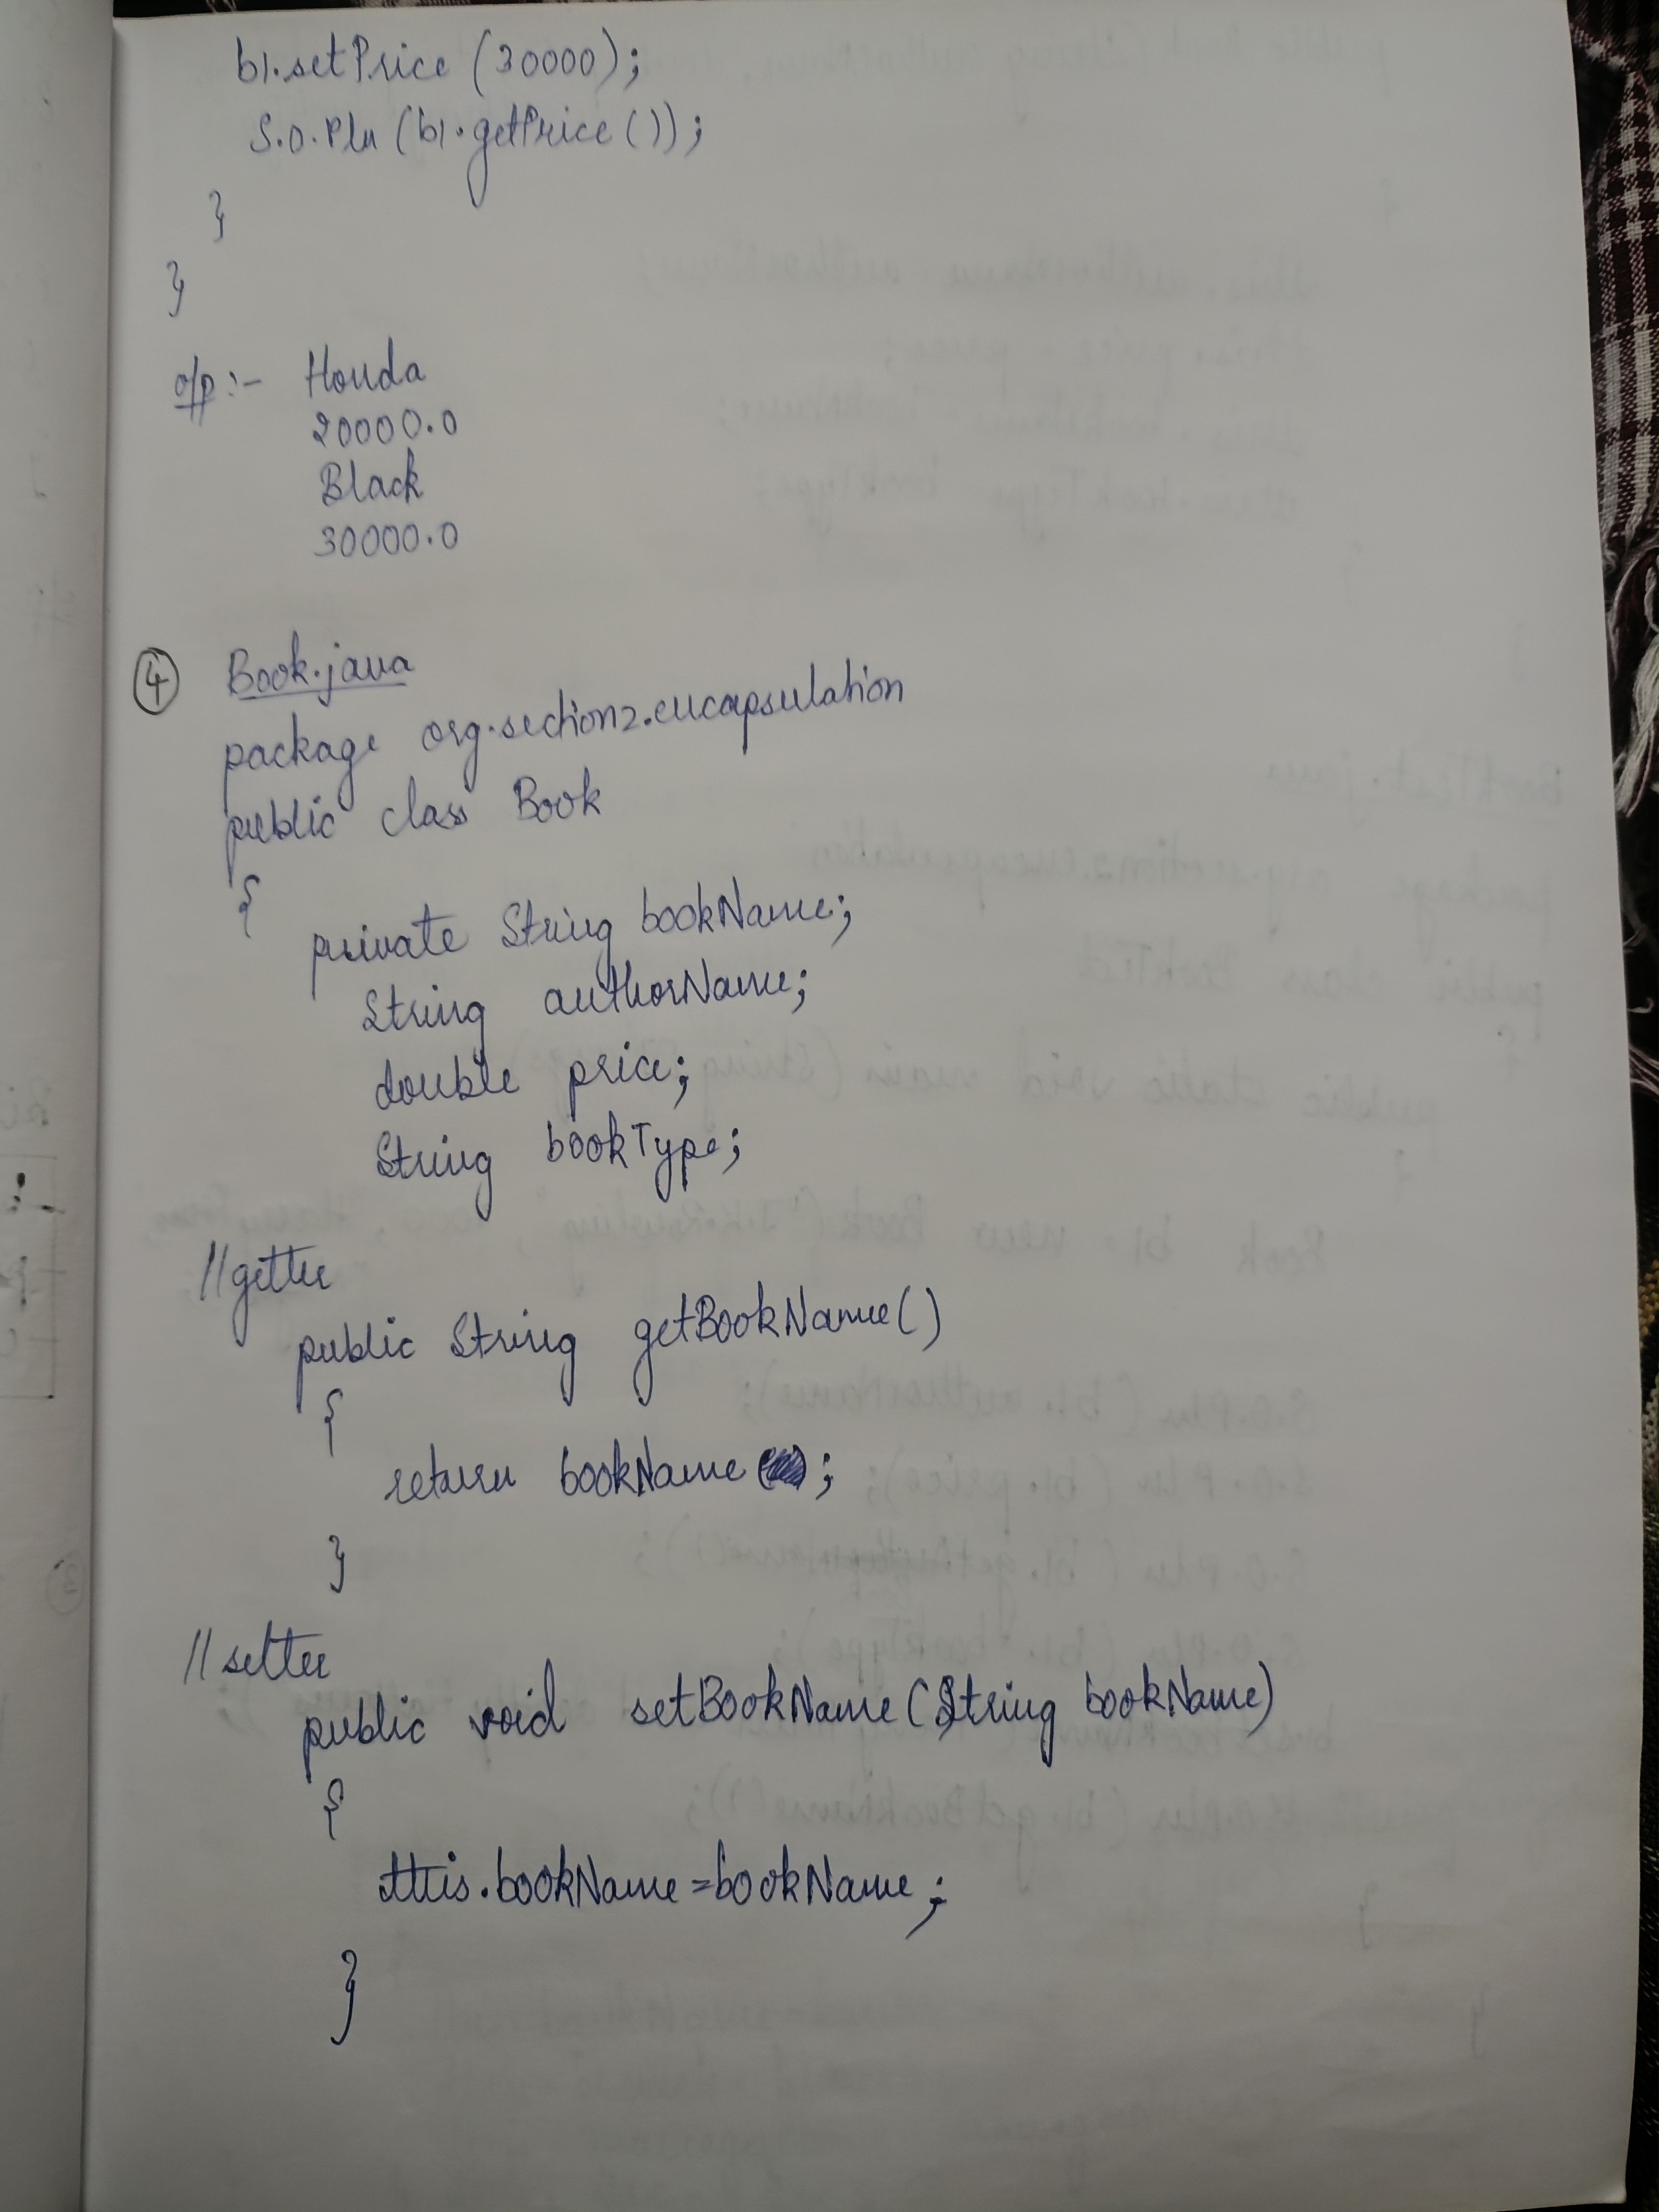 b1.setPrice (30000);
S.O.Pln (b1.getPrice ());
}
}
o/p :- Honda
20000.0
Black
30000.0
4 Book.java
package org.section2.encapsulation
public class Book
{
private String bookName;
String authorName;
double price;
String bookType;
//getter
public String getBookName()
{
return bookName ;
}
//setter
public void setBookName(String bookName)
{
this.bookName=bookName;
}